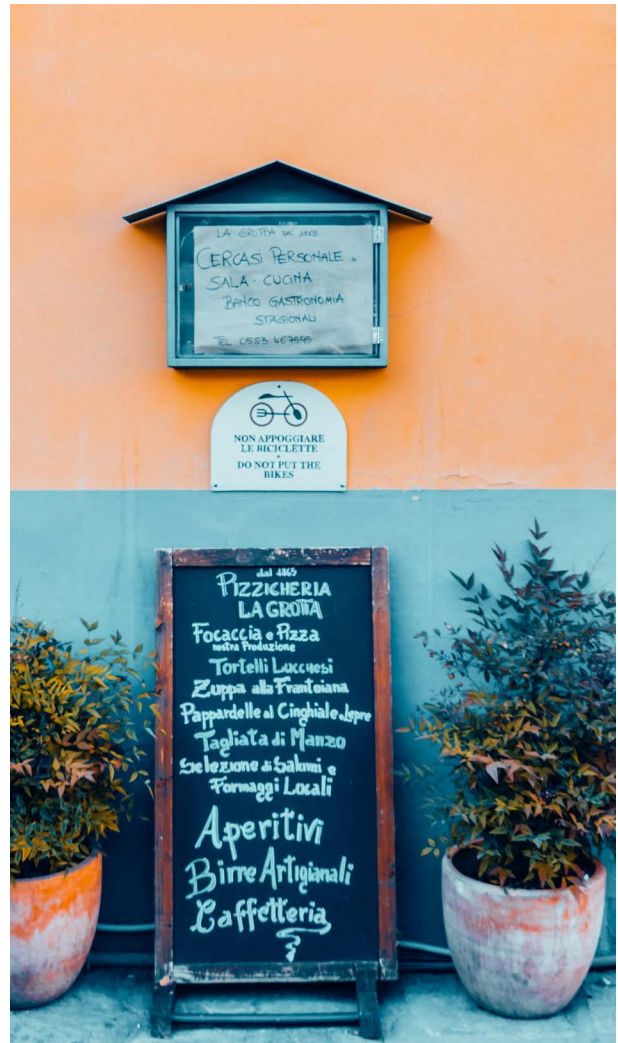 LA GROTTA DAL 1865
CERCASI PERSONALE
SALA - CUCINA
BANCO GASTRONOMIA
STAGIONALI
TEL 0583 467595
NON APPOGGIARE
LE BICICLETTE
DO NOT PUT THE
BIKES
dal 1865
PIZZICHERIA
LA GROTTA
Focaccia e Pizza
nostra Produzione
Tortelli Lucchesi
Zuppa alla Frantoiana
Pappardelle al Cinghiale e Lepre
Tagliata di Manzo
Selezione di Salumi e
Formaggi Locali
Aperitivi
Birre Artigianali
Caffetteria